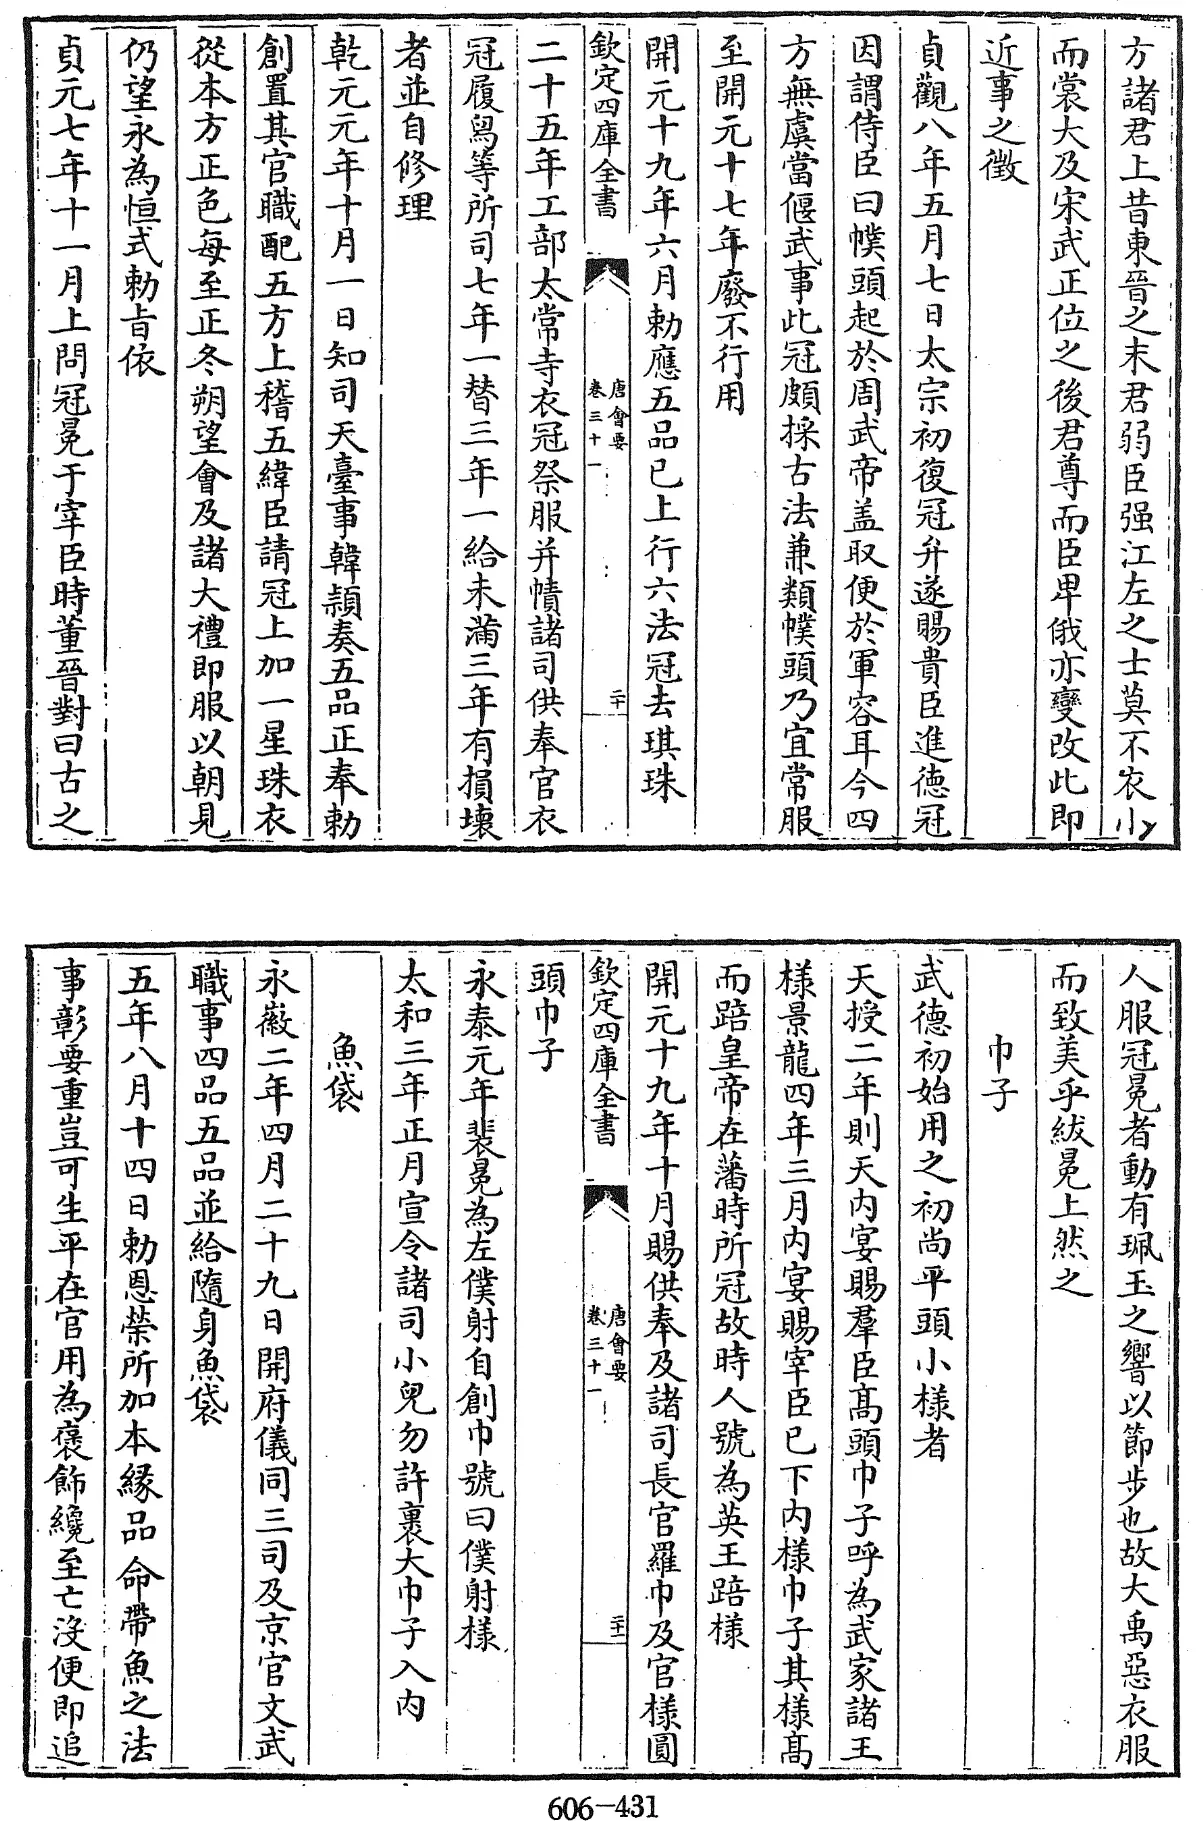 方諸君上昔東晉之末君弱臣强江左之士莫不衣小
而裳大及宋武正位之後君尊而臣卑俄亦變改此即
近事之徴
貞觀八年五月七日太宗初復冠弁遂賜貴臣進德冠
因謂侍臣曰幞頭起於周武帝盖取便於軍容耳今四
方無虞當偃武事此冠頗採古法兼類幞頭乃宜常服
至開元十七年廢不行用
開元十九年六月勅應五品已上行六法冠去琪珠
欽定四庫全書
唐會要
卷三十一
二十
二十五年工部太常寺衣冠祭服并幘諸司供奉官衣
冠履舄等所司七年一替三年一給未滿三年有損壞
者並自修理
乾元元年十月一日知司天臺事韓頴奏五品正奉勅
創置其官職配五方上稽五緯臣請冠上加一星珠衣
從本方正色每至正冬朔望會及諸大禮即服以朝見
仍望永為恒式勅旨依
貞元七年十一月上問冠冕于宰臣時董晉對曰古之
人服冠冕者動有珮玉之響以節步也故大禹惡衣服
而致美乎紱冕上然之
巾子
武德初始用之初尚平頭小様者
天授二年則天内宴賜羣臣髙頭巾子呼為武家諸王
様景龍四年三月内宴賜宰臣已下内様巾子其様髙
而踣皇帝在藩時所冠故時人號為英王踣様
開元十九年十月賜供奉及諸司長官羅巾及官様圓
欽定四庫全書
唐會要
卷三十一
二十一
頭巾子
永泰元年裴冕為左僕射自創巾號曰僕射様
太和三年正月宣令諸司小兒勿許裹大巾子入内
魚袋
永徽二年四月二十九日開府儀同三司及京官文武
職事四品五品並給隨身魚袋
五年八月十四日勅恩榮所加本縁品命帶魚之法
事彰要重豈可生平在官用為褒飾纔至亡沒便即追
606-431